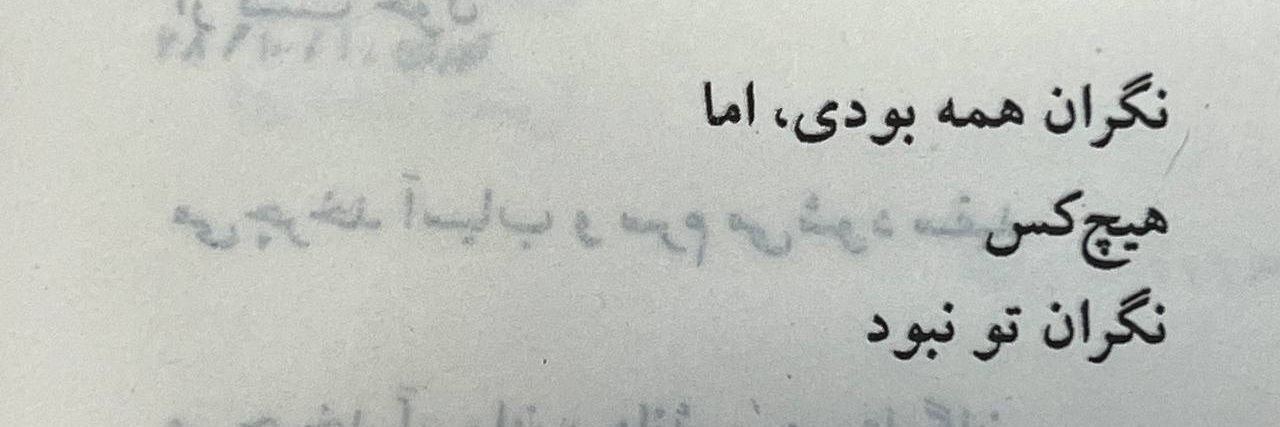 نگران همه بودی، اما
هیچ‌کس
نگران تو نبود